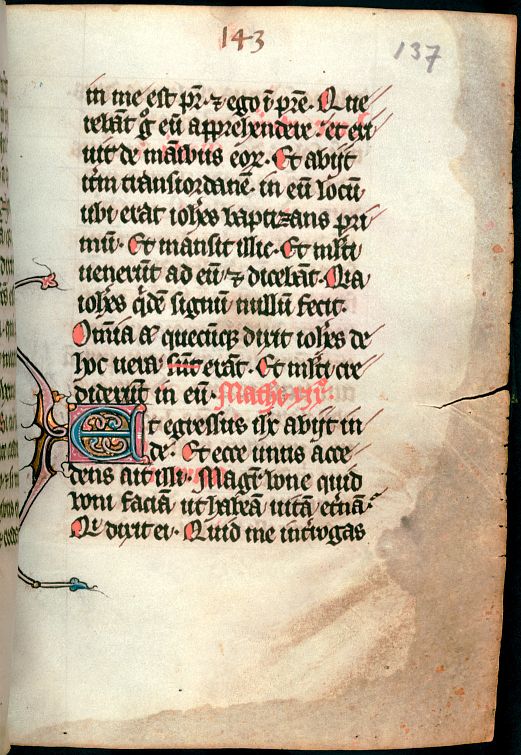 143
137
in me est pr̄. ⁊ ego ī prē. Que
rebāt g̊ eū apprehendere. et exi
uit de manibus eoꝝ. Et abijt
itm̄ transiordanē. in eū locū
ubi erāt ioh̄es baptizans pri
mū. Et mansit illic. Et m̄lti
uenerūt ad eū ⁊ dicebāt. Quia
ioh̄es q̄dē signū nullū fecit.
Omīa āe quecūqꝫ dixit ioh̄es de
hoc uera sūt erāt. Et m̄lti cre
diderūt in eū. Mathe xix.
Et egressus ih̄c abijt in
de. Et ecce unus acce
dens ait illi. Magr̄ bone quid
boni faciā ut habeā uitā et̄nā.
Qi dixit ei. Quid me int̄rogas